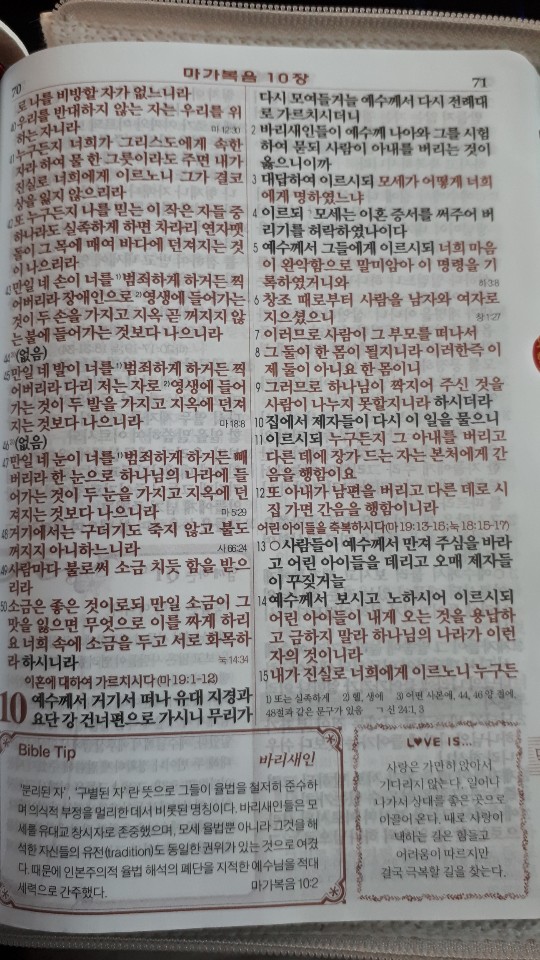 70
마가복음 10장
71
로 나를 비방할 자가 없느니라
40 우리를 반대하지 않는 자는 우리를 위
하는 자니라 마 12:30
41 누구든지 너희가 그리스도에게 속한
자라 하여 물 한 그릇이라도 주면 내가
진실로 너희에게 이르노니 그가 결코
상을 잃지 않으리라
42 또 누구든지 나를 믿는 이 작은 자들 중
하나라도 실족하게 하면 차라리 연자맷
돌이 그 목에 매여 바다에 던져지는 것
이 나으리라
43 만일 네 손이 너를 1)범죄하게 하거든 찍
어버리라 장애인으로 2)영생에 들어가는
것이 두 손을 가지고 지옥 곧 꺼지지 않
는 불에 들어가는 것보다 나으니라
44 3)(없음)
45 만일 네 발이 너를 1)범죄하게 하거든 찍
어버리라 다리 저는 자로 2)영생에 들어
가는 것이 두 발을 가지고 지옥에 던져
지는 것보다 나으니라 마 18:8
46 3)(없음)
47 만일 네 눈이 너를 1)범죄하게 하거든 빼
버리라 한 눈으로 하나님의 나라에 들
어가는 것이 두 눈을 가지고 지옥에 던
져지는 것보다 나으니라 마 5:29
48 거기에서는 구더기도 죽지 않고 불도
꺼지지 아니하느니라 사 66:24
49 사람마다 불로써 소금 치듯 함을 받으
리라
50 소금은 좋은 것이로되 만일 소금이 그
맛을 잃으면 무엇으로 이를 짜게 하리
요 너희 속에 소금을 두고 서로 화목하
라 하시니라 눅 14:34
이혼에 대하여 가르치시다 (마 19:1-12)
10 예수께서 거기서 떠나 유대 지경과
요단 강 건너편으로 가시니 무리가
다시 모여들거늘 예수께서 다시 전례대
로 가르치시더니
2 바리새인들이 예수께 나아와 그를 시험
하여 묻되 사람이 아내를 버리는 것이
옳으니이까
3 대답하여 이르시되 모세가 어떻게 너희
에게 명하였느냐
4 이르되 ㄱ모세는 이혼 증서를 써주어 버
리기를 허락하였나이다
5 예수께서 그들에게 이르시되 너희 마음
이 완악함으로 말미암아 이 명령을 기
록하였거니와 히 3:8
6 창조 때로부터 사람을 남자와 여자로
지으셨으니 창 1:27
7 이러므로 사람이 그 부모를 떠나서
8 그 둘이 한 몸이 될지니라 이러한즉 이
제 둘이 아니요 한 몸이니
9 그러므로 하나님이 짝지어 주신 것을
사람이 나누지 못할지니라 하시더라
10 집에서 제자들이 다시 이 일을 물으니
11 이르시되 누구든지 그 아내를 버리고
다른 데에 장가 드는 자는 본처에게 간
음을 행함이요
12 또 아내가 남편을 버리고 다른 데로 시
집 가면 간음을 행함이니라
어린 아이들을 축복하시다 (마 19:13-15; 눅 18:15-17)
13 ○사람들이 예수께서 만져 주심을 바라
고 어린 아이들을 데리고 오매 제자들
이 꾸짖거늘
14 예수께서 보시고 노하시어 이르시되
어린 아이들이 내게 오는 것을 용납하
고 금하지 말라 하나님의 나라가 이런
자의 것이니라
15 내가 진실로 너희에게 이르노니 누구든
1) 또는 실족하게 2) 헬, 생에 3) 어떤 사본에, 44, 46 양 절에,
48절과 같은 문구가 있음 ㄱ 신 24:1, 3
Bible Tip
바리새인
'분리된 자', '구별된 자'란 뜻으로 그들이 율법을 철저히 준수하
며 의식적 부정을 멀리한 데서 비롯된 명칭이다. 바리새인들은 모
세를 유대교 창시자로 존중했으며, 모세 율법뿐 아니라 그것을 해
석한 자신들의 유전(tradition)도 동일한 권위가 있는 것으로 여겼
다. 때문에 인본주의적 율법 해석의 폐단을 지적한 예수님을 적대
세력으로 간주했다. 마가복음 10:2
L♥VE IS...
사랑은 가만히 앉아서
기다리지 않는다. 일어나
나가서 상대를 좋은 곳으로
이끌어 온다. 때로 사랑이
택하는 길은 힘들고
어려움이 따르지만
결국 극복할 길을 찾는다.